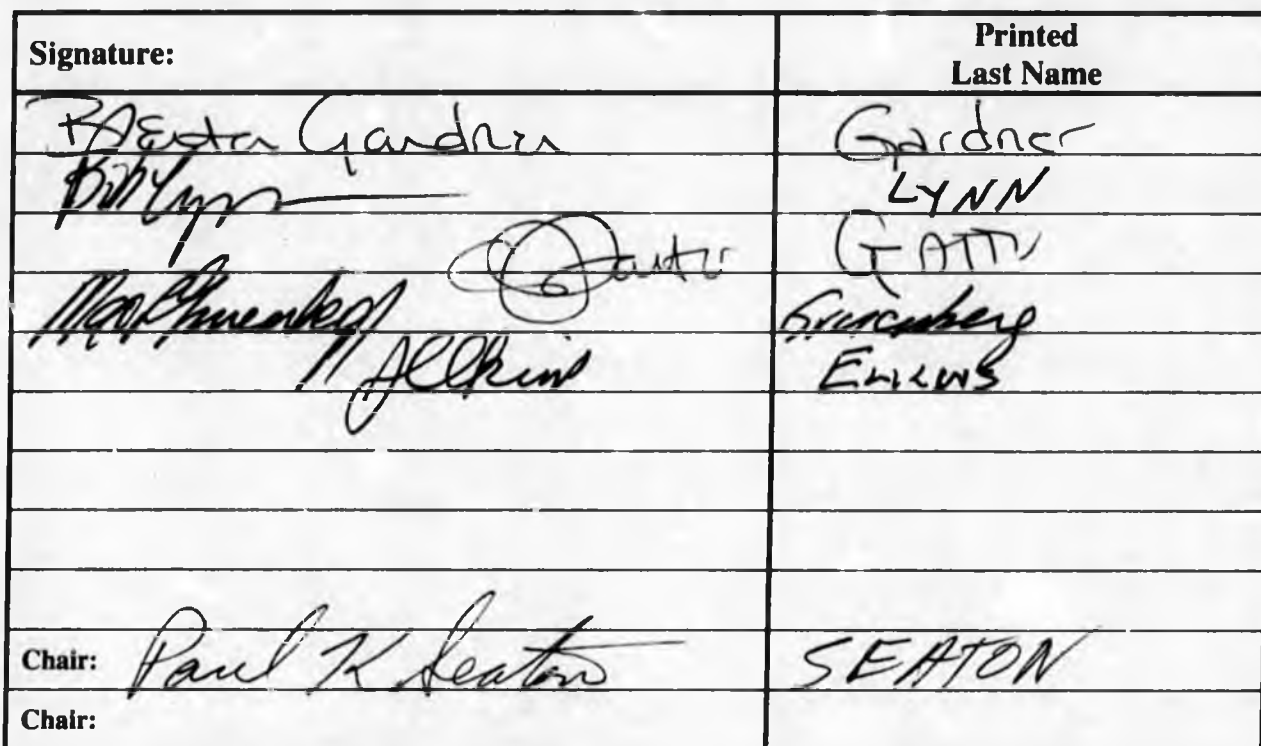 Signature:
Printed
Last Name
Berta Gardner Gardner
Bob Lynn LYNN
Gatto GATTO
Max Gruenberg Gruenberg
Elkins ELKINS
Chair: Paul K Seaton SEATON
Chair: